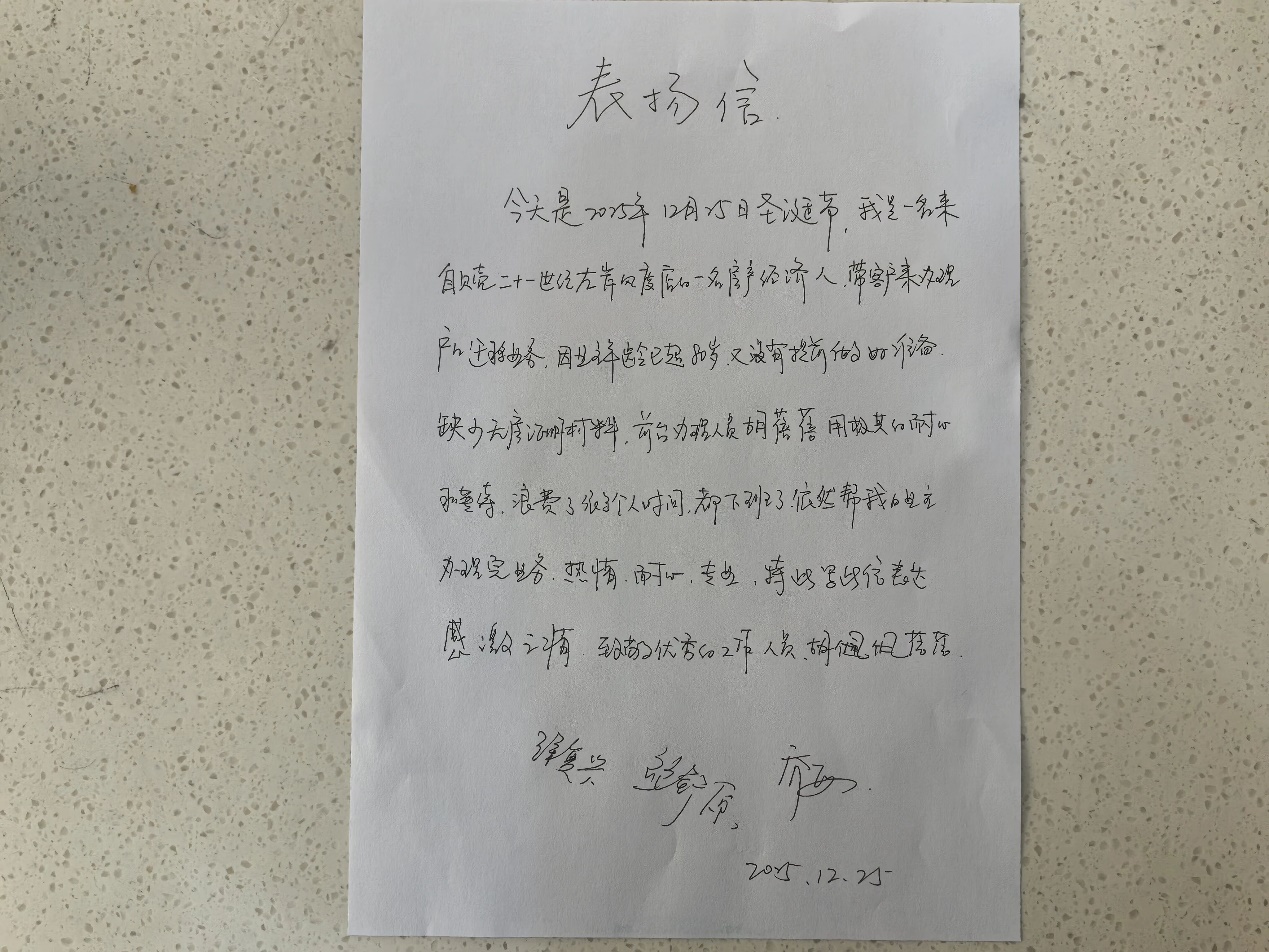 表扬信.
今天是2025年12月25日圣诞节,我是一名来
自贝壳二十一世纪左岸店的一名房产经济人,带客户来办理
户口迁移业务,因业主年龄已超80岁,又没有提前做好准备.
缺少无房证明材料,前台办理人员胡蓓蓓用极其的耐心
和等待,浪费了很多个人时间,都下班了依然帮我的业主
办理完业务.热情.耐心.专业,特此写此信表达
感激之情.致敬优秀的工作人员,胡蓓蓓.
2025.12.25